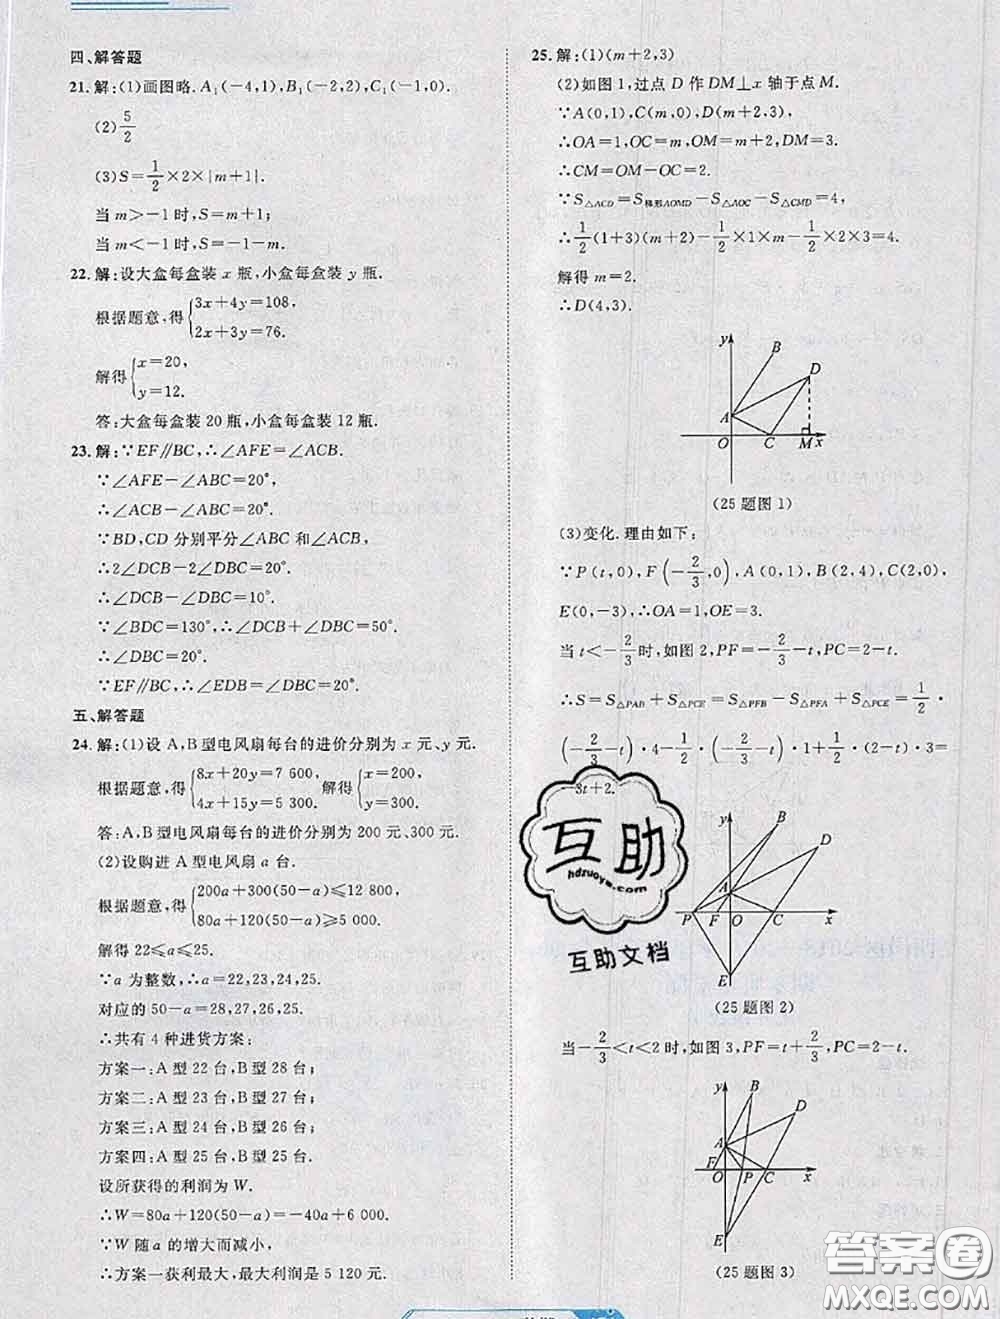 四、解答题
21.解:(1)画图略.A₁(-4,1),B₁(-2,2),C₁(-1,0).
(2)5/2
(3)S=1/2×2×|m+1|.
当m>-1时,S=m+1;
当m<-1时,S=-1-m.
22.解:设大盒每盒装x瓶,小盒每盒装y瓶.
根据题意,得{3x+4y=108, 2x+3y=76.
解得{x=20, y=12.
答:大盒每盒装20瓶,小盒每盒装12瓶.
23.解:∵EF∥BC,∴∠AFE=∠ACB.
∵∠AFE-∠ABC=20°,
∴∠ACB-∠ABC=20°.
∵BD,CD分别平分∠ABC和∠ACB,
∴2∠DCB-2∠DBC=20°.
∴∠DCB-∠DBC=10°.
∵∠BDC=130°,∴∠DCB+∠DBC=50°.
∴∠DBC=20°.
∵EF∥BC,∴∠EDB=∠DBC=20°.
五、解答题
24.解:(1)设A,B型电风扇每台的进价分别为x元、y元.
根据题意,得{8x+20y=7 600, 4x+15y=5 300. 解得{x=200, y=300.
答:A,B型电风扇每台的进价分别为200元、300元.
(2)设购进A型电风扇a台.
根据题意,得{200a+300(50-a)≤12 800, 80a+120(50-a)≥5 000.
解得22≤a≤25.
∵a为整数,∴a=22,23,24,25.
对应的50-a=28,27,26,25.
∴共有4种进货方案:
方案一:A型22台,B型28台;
方案二:A型23台,B型27台;
方案三:A型24台,B型26台;
方案四:A型25台,B型25台.
设所获得的利润为W.
∴W=80a+120(50-a)=-40a+6 000.
∵W随a的增大而减小,
∴方案一获利最大,最大利润是5 120元.
25.解:(1)(m+2,3)
(2)如图1,过点D作DM⊥x轴于点M.
∵A(0,1),C(m,0),D(m+2,3),
∴OA=1,OC=m,OM=m+2,DM=3.
∴CM=OM-OC=2.
∵S△ACD=S梯形AOMD-S△AOC-S△CMD=4,
∴1/2(1+3)(m+2)-1/2×1×m-1/2×2×3=4.
解得m=2.
∴D(4,3).
y B D A O C M x
(25题图1)
(3)变化.理由如下:
∵P(t,0),F(-2/3,0),A(0,1),B(2,4),C(2,0),
E(0,-3),∴OA=1,OE=3.
当t<-2/3时,如图2,PF=-2/3-t,PC=2-t.
∴S=S△PAB+S△PCE=S△PFB-S△PFA+S△PCE=1/2·
(-2/3-t)·4-1/2·(-2/3-t)·1+1/2·(2-t)·3=
-3t+2.
y B D A P F O C x E
(25题图2)
当-2/3<t<2时,如图3,PF=t+2/3,PC=2-t.
y B D A F O P C x E
(25题图3)
互助
hdzuoye.com
互助文档
答案圈
MXQE.COM